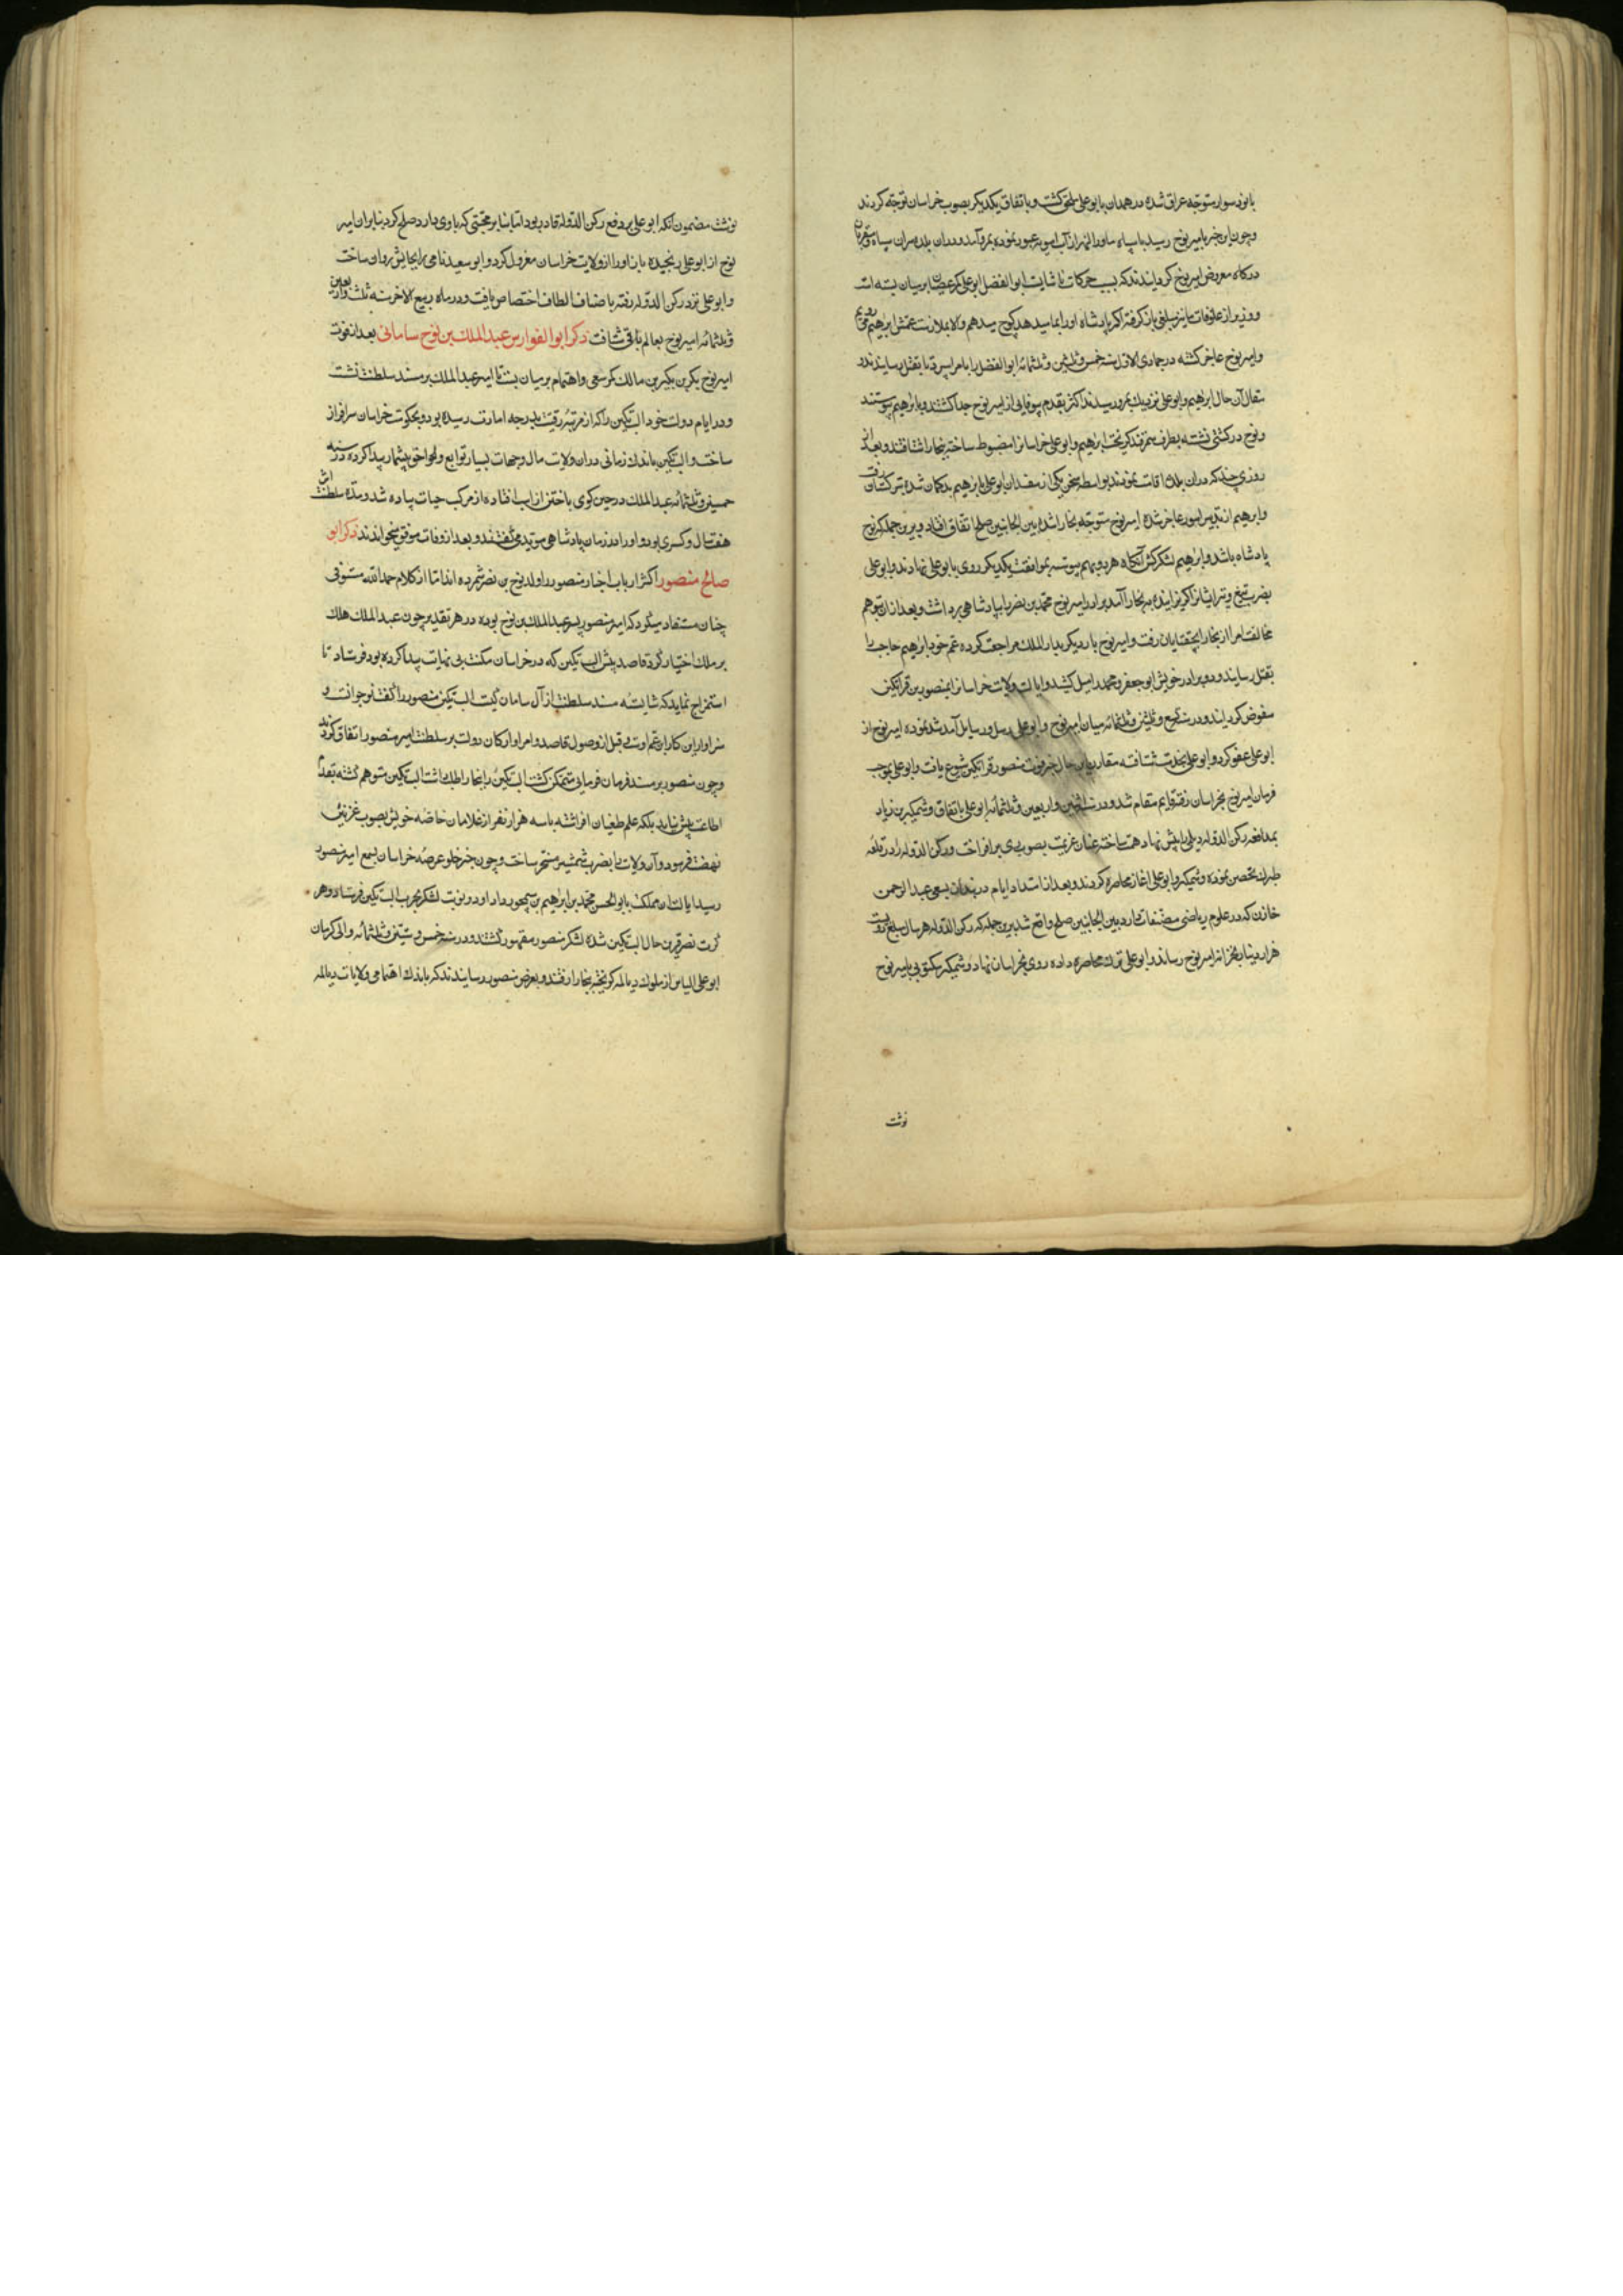 با نود سوار متوجه عراق شده در همدان با بوعلی ملحق گشت و باتفاق یکدیگر بصوب خراسان توجه کردند
و چون این خبر بامیر نوح رسید با سپاه ماوراالنهر از آب امویه عبور نموده بمرو آمد و در ان بلده سران سپاه و مقربان
درکاه معروض امیر نوح کردانیدند که بسبب حرکات ناشایست ابوالفضل ابوعلی کمر عصیان بر میان بسته است
و وزیر از علوفات ما نیز مبلغی باز کرفته اکر پادشاه او را بما میدهد کوچ میدهیم والا بملازمت عمش ابرهیم می رویم
و امیر نوح عاجز کشته در جمادی الاول سنه خمس و ثلثین و ثلثمائه ابوالفضل را بامرا سپرد تا بقتل رسانیدند در
مقال آن حال ابرهیم و ابوعلی نزدیک بمرو رسیدند اکثر بقدم بیوفایی از امیر نوح جدا کشتند و با ابرهیم پیوستند
و نوح در کشتی نشسته بطرف سمرقند کریخت ابرهیم و ابوعلی خراسانرا مضبوط ساخته ببخارا شتافتند و بعد از
روزی چند که در ان بلده اقامت نمودند بواسطه سخن یکی از مفسدان ابوعلی با ابرهیم بدکمان شده بترکستان رفت
و ابرهیم از تدبیر امور عاجز شده امیر نوح متوجه بخارا شد و بین الجانبین صلح اتفاق افتاد و برین جمله که نوح
پادشاه باشد و ابرهیم لشکرکش آنکاه هر دو بهم پیوسته بموافقت یکدیکر روی با بوعلی نهادند و ابوعلی
بضرب تیغ و تیر ایشانرا کریزانیده ببخارا آمد برادر امیر نوح محمد بن نصر را بپادشاهی برداشت و بعد از ان بتوهم
مخالفت امرا از بخارا بچغانیان رفت و امیر نوح بار دیکر بدارالملک مراجعت کرده عم خود ابرهیم حاجب را
بقتل رسانید و دو برادر خویش ابوجعفر و محمد را میل کشید و ایالت ولایت خراسانرا بمنصور بن قراتکین
مفوض کردانید و در سنه سبع و ثلثین و ثلثمائه میان امیر نوح و ابوعلی رسل و رسایل آمد شد نموده امیر نوح از
ابوعلی عفو کرد و ابوعلی بخدمت شتافته مقارن این حال خبر فوت منصور قراتکین شیوع یافت و ابوعلی بموجب
فرمان امیر نوح بخراسان رفته قایم مقام شد و در سنه اثنین و اربعین و ثلثمائه ابوعلی باتفاق وشمکیر بن زیاد
بمدافعه رکن الدوله دیلمی را پیش نهاد همت ساخته عنان عزیمت بصوب ری برافراخت و رکن الدوله را در قلعه
طبرک تحصن نموده وشمکیر و ابوعلی اغاز محاصره کردند و بعد از امتداد ایام در بندان بسعی عبدالرحمن
خازن که در علوم ریاضی مصنفات دارد بین الجانبین صلح واقع شد برین جمله که رکن الدوله هر سال مبلغ دویست
هزار دینار بخزانه امیر نوح رساند و ابوعلی ترک محاصره داده روی بخراسان نهاد و شمکیر مکتوبی بامیر نوح
نوشت
نوشت مضمون آنکه ابوعلی بر دفع رکن الدوله قادر بود اما بنابر محبتی که باوی دارد صلح کرد بنابران امیر
نوح از ابوعلی رنجیده باز او را از ولایت خراسان معزول کرد و ابوسعید نامی را بجایش روان ساخت
و ابوعلی نزد رکن الدوله رفته باصناف الطاف اختصاص یافت و در ماه ربیع الاخر سنه ثلث و اربعین
و ثلثمائه امیر نوح بعالم باقی شتافت ذکر ابوالفوارس عبدالملک بن نوح سامانی بعد از فوت
امیر نوح بکر بن مالک کمر سعی و اهتمام بر میان بست تا امیر عبدالملک بر مسند سلطنت نشست
و در ایام دولت خود البتکین را که از مرتبه رقیت بدرجه امارت رسیده بود و بحکومت خراسان سرافراز
ساخت و البتکین باندک زمانی در ان ولایت مال و جهات بسیار توابع و لواحق بیشمار پیدا کرده در سنه
خمسین و ثلثمائه عبدالملک در حین کوی باختن از اسب افتاده از مرکب حیات پیاده شد و مدت سلطنت اش
هفت سال و کسری بود و او را در زمان پادشاهی موید می گفتند و بعد از وفات موفق میخواندند ذکر ابو
صالح منصور اکثر ارباب اخبار منصور را ولد نوح بن نصر شمرده اند اما از کلام حمدالله مستوفی
چنان مستفاد میکردد که امیر منصور پسر عبدالملک بن نوح بوده در هر تقدیر چون عبدالملک هلک
بر ملک اختیار کرد قاصد پیش البتکین که در خراسان مکنت بی نهایت پیدا کرده بود فرستاد تا
استمزاج نماید که شایسته مسند سلطنت از آل سامان کیست البتکین منصور را گفت نوجوانست و
سزاوار این کار ان عم اوست و قبل از وصول قاصد امرا و ارکان دولت بر سلطنت امیر منصور اتفاق کردند
و چون منصور بر مسند فرمان فرمایی متمکن کشت البتکین را ببخارا طلب داشت البتکین متوهم گشته بقدم
اطاعت پیش نیامد بلکه علم طغیان افراشته باسه هزار نفر از غلامان خاصه خویش بصوب غزنین
نهضت فرمود و آن ولایت را بضرب شمشیر مسخر ساخت و چون خبر خلو عرصه خراسان بسمع امیر منصور
رسید ایالت ان مملکت بابوالحسن محمد بن ابراهیم بن سیمجور داد و او دو نوبت لشکر بحرب البتکین فرستاد و هر
کرت نصر قرین حال البتکین شده لشکر منصور مقهور گشتند و در سنه خمس و ستین و ثلثمائه والی کرمان
ابوعلی الیاس از ملوک دیالمه کریخته ببخارا رفتند و بعرض منصور رسانیدند که باندک اهتمامی ولایات دیالمه